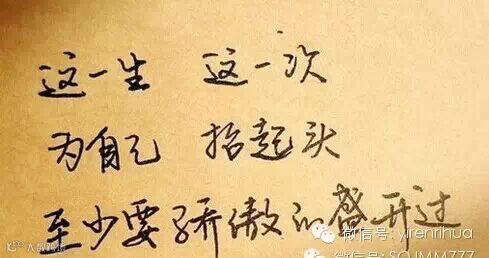 这一生 这一次
为自己 抬起头
至少要骄傲的盛开过
微信号: yirenrihua
微信号: SOJMM777